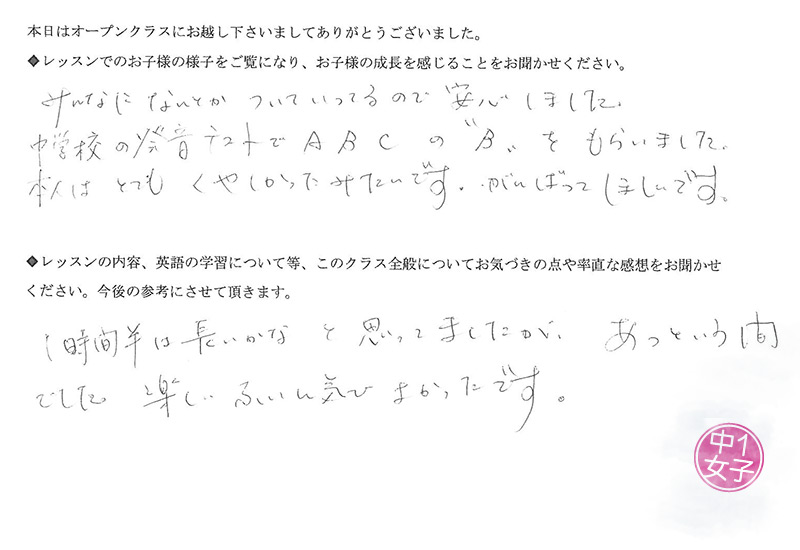 本日はオープンクラスにお越し下さいましてありがとうございました。
◆レッスンでのお子様の様子をご覧になり、お子様の成長を感じることをお聞かせください。
みんなになんとかついていってるので安心しました。
中学校の発音テストでABCの"B"をもらいました。
本人はとてもくやしかったみたいです。がんばってほしいです。
◆レッスンの内容、英語の学習について等、このクラス全般についてお気づきの点や率直な感想をお聞かせ
ください。今後の参考にさせて頂きます。
1時間半は長いかなと思ってましたが、あっという間
でした。楽しいふんい気でよかったです。
中1
女子